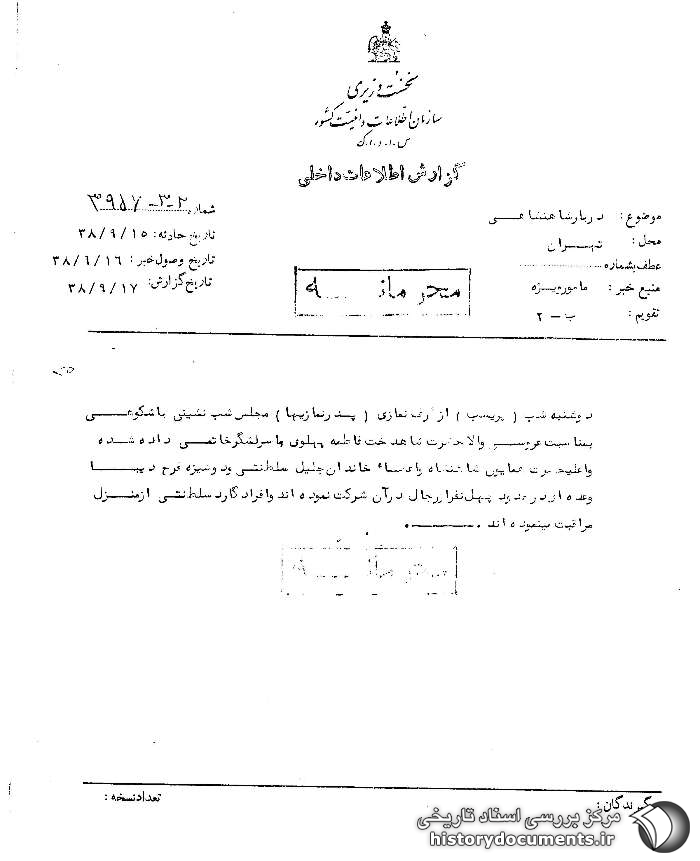 نخست وزیری
سازمان اطلاعات و امنیت کشور
س.ا.و.ا.ک
گزارش اطلاعات داخلی
موضوع : دربار شاهنشاهی
محل : تهران
عطف بشماره
منبع خبر : مامور ویژه
تقویم : ب - ۲
شماره ۳۹۵۷-۳-۲
تاریخ حادثه : ۳۸/۹/۱۵
تاریخ وصول خبر : ۳۸/۹/۱۶
تاریخ گزارش : ۳۸/۹/۱۷
محرمانه
دوشنبه شب ( پریشب ) از طرف نمازی ( پدر نمازیها ) مجلس شب نشینی باشکوهی
بمناسبت عروسی والاحضرت شاهدخت فاطمه پهلوی با سرلشگر خاتمی داده شده
و اعلیحضرت همایون شاهنشاه و اعضاء خاندان جلیل سلطنتی و دوشیزه فرح دیبا
وعده ای در حدود چهل نفر از رجال در آن شرکت نموده اند و افراد گارد سلطنتی از منزل
مراقبت مینموده اند .
محرمانه
گیرندگان :
تعداد نسخه :
مرکز بررسی اسناد تاریخی
historydocuments.ir